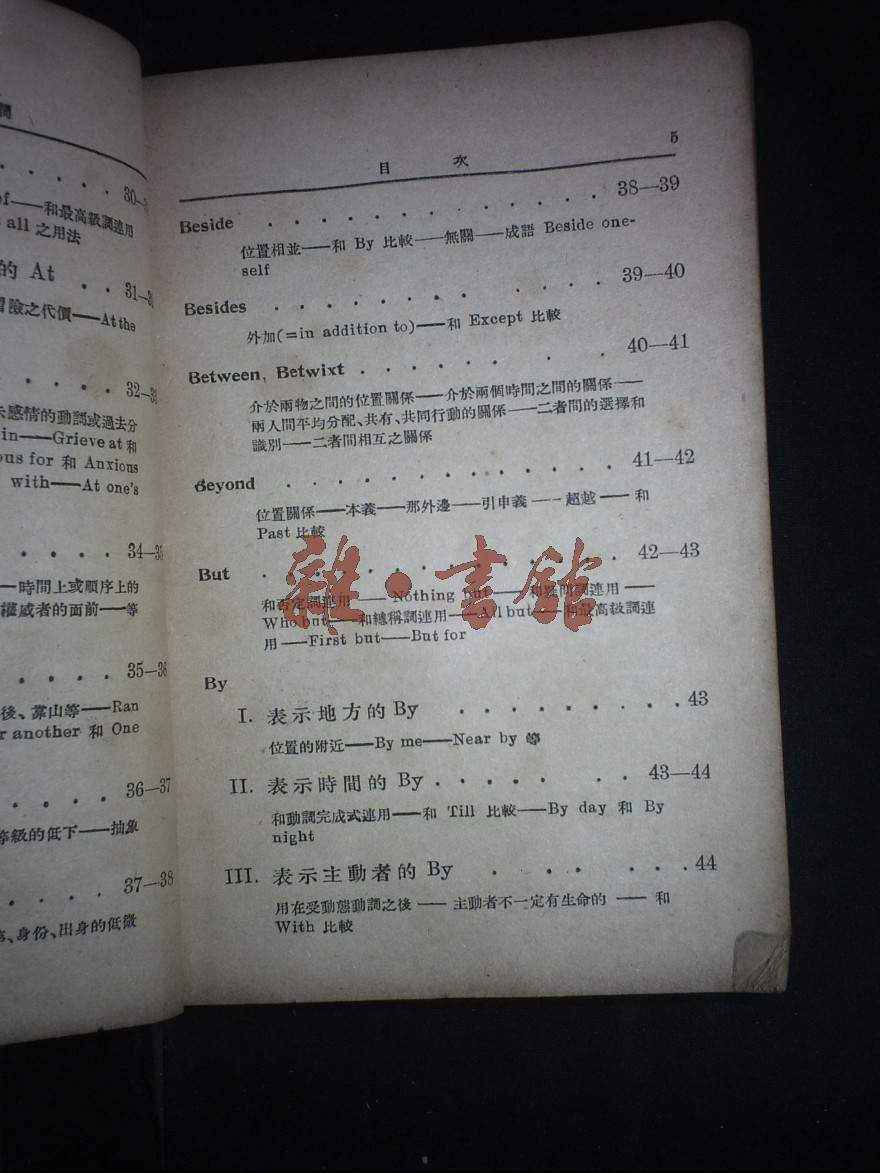 30—3
of——和最高級詞連用
all 之用法
的 At . . 31—3
冒險之代價——At the
32—3
示感情的動詞或過去分
in——Grieve at 和
ous for 和 Anxious
with——At one's
34—35
——時間上或順序上的
權威者的面前——等
35—36
後、靠山等——Ran
r another 和 One
36—37
等級的低下——抽象
37—38
、身份、出身的低微
目 次 5
Beside . . . . . . . . . . . . . 38—39
位置相並——和 By 比較——無關——成語 Beside one-
self
Besides . . . . . . . . . . . . 39—40
外加(=in addition to)——和 Except 比較
Between, Betwixt . . . . . . . . . 40—41
介於兩物之間的位置關係——介於兩個時間之間的關係——
兩人間平均分配、共有、共同行動的關係——二者間的選擇和
識別——二者間相互之關係
Beyond . . . . . . . . . . . . . 41—42
位置關係——本義——那外邊——引申義——超越——和
Past 比較
But . . . . . . . . . . . . . 42—43
和否定詞連用——Nothing but——和疑問詞連用——
Who but——和總稱詞連用——All but——和最高級詞連
用——First but——But for
By
I. 表示地方的 By . . . . . . . . . 43
位置的附近——By me——Near by 等
II. 表示時間的 By . . . . . . . 43—44
和動詞完成式連用——和 Till 比較——By day 和 By
night
III. 表示主動者的 By . . . . . . . 44
用在受動態動詞之後——主動者不一定有生命的——和
With 比較
雜·書館